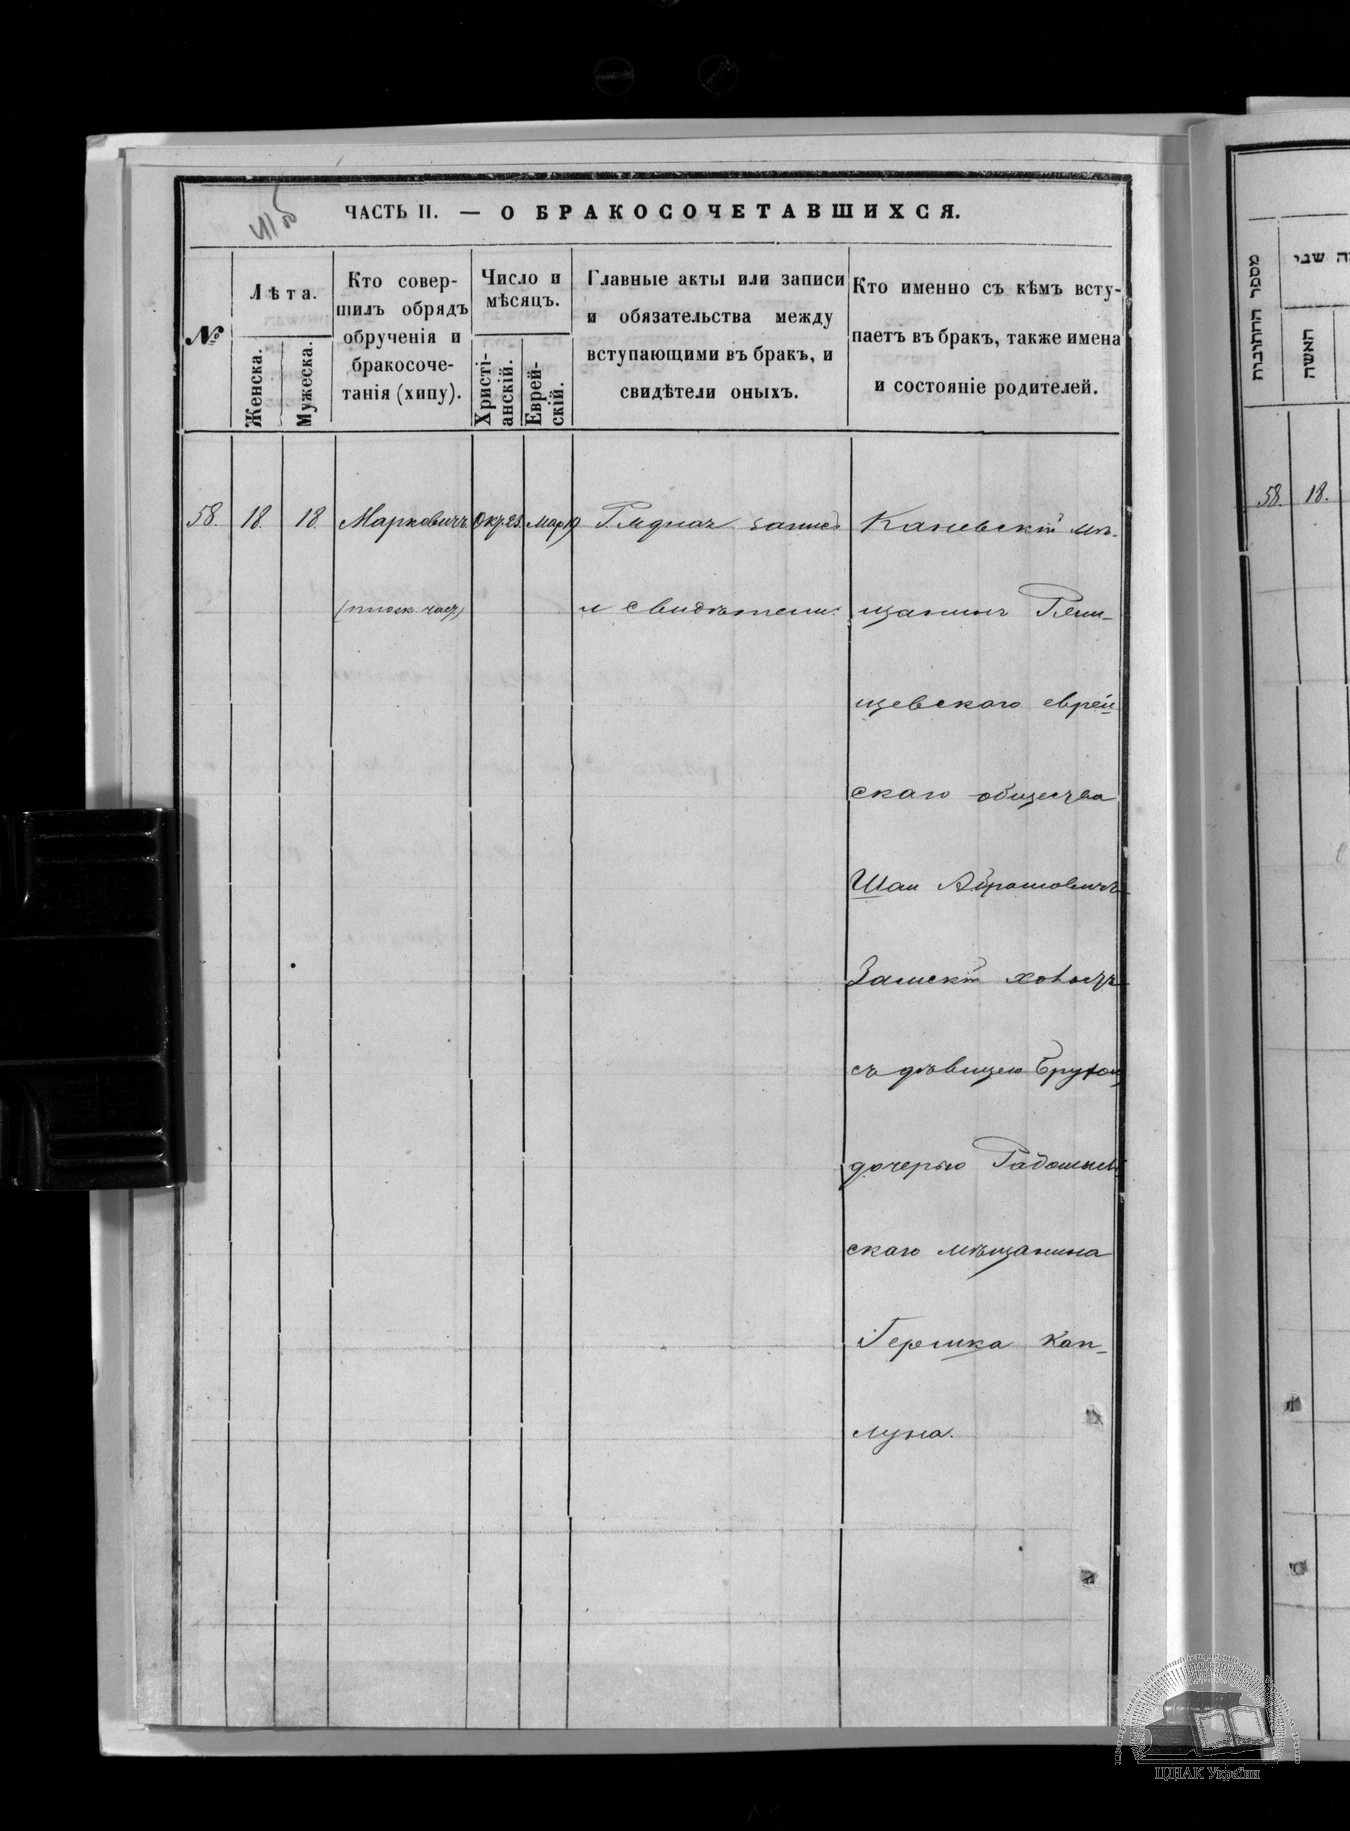 ЧАСТЬ II. — О БРАКОСОЧЕТАВШИХСЯ.
№
Лѣта.
Женска.
Мужеска.
Кто совер-
шилъ обрядъ
обрученія и
бракосоче-
танія (хипу).
Число и
мѣсяцъ.
Христі-
анскій.
Еврей-
скій.
Главные акты или записи
и обязательства между
вступающими въ брак, и
свидѣтели оныхъ.
Кто именно съ кѣмъ всту-
паетъ въ брак, также имена
и состояніе родителей.
58. 18. 18. Марковичъ запись
и свидѣтели.
Каневскій мѣ-
щанинъ
щевскаго еврей
скаго общества
Шаи Абрамовичъ
Замскій холостъ
съ дѣвицею Брухою
дочерью Радомысль
скаго мѣщанина
Гершка Кап-
луна.
מספר החתונות
האשה
58. 18.
ЦДІАК України